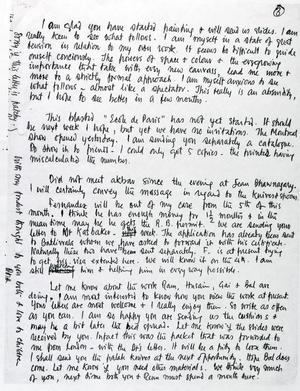 8
I am glad you have started painting & will send us slides. I am
really keen to see what follows. I am myself in a state of great
tension in relation to my own work. It seems so difficult to guide
oneself consciously. The forces of space & colour & the evergrowing
importance that take with every new canvas, lead me more &
more to a strictly formal approach. I am myself anxious to see
what follows – almost like a spectator. This really is an absurdity,
but I hope to see better in a few months.
This blasted "Ecole de Paris" has not yet started. It should
be next week I hope, but yet we have no invitations. The Montreal
show opened yesterday. I am sending you separately a catalogue.
Do show it to friends – I could only get 5 copies – the printer having
miscalculated the number.
Did not meet Akbar since the evening at Jean Bhownagary.
I will certainly convey the message in regard to the
Fernandez will be out of my care from the 5th of this
month. I think he has enough money for 1½ months & in the
mean time may be gets the R.D. Grimmet. We are sending your
letter to Mr Kotbaker next week. The application has already been sent
to which we have asked to forward it with this
Naturally these two have been sent separately. F. is at present trying
extended here. We will know it on the 4th. I am
still him & helping him in every way possible.
Let me know about the work Ram, Husain, Gai & Bal are
doing. I am most interested to know how you view the work at present.
Your letters are most welcome & I really enjoy them. So write as often
as you can. I am so happy you are sending us the cushions &
may be a bit later the bed spread. Let me know if the slides were
received by you. Infact this was the packet that was forwarded to
me from London – with the Gai letter. It will be a pity to lose them.
I shall send you the palette knives at the next opportunity. Hope Bal does
come. Let me know if you need other materials. We think very much
of you, next time both you & Renu must spend a month here.
With our fondest thought to you both & love to children
Raza